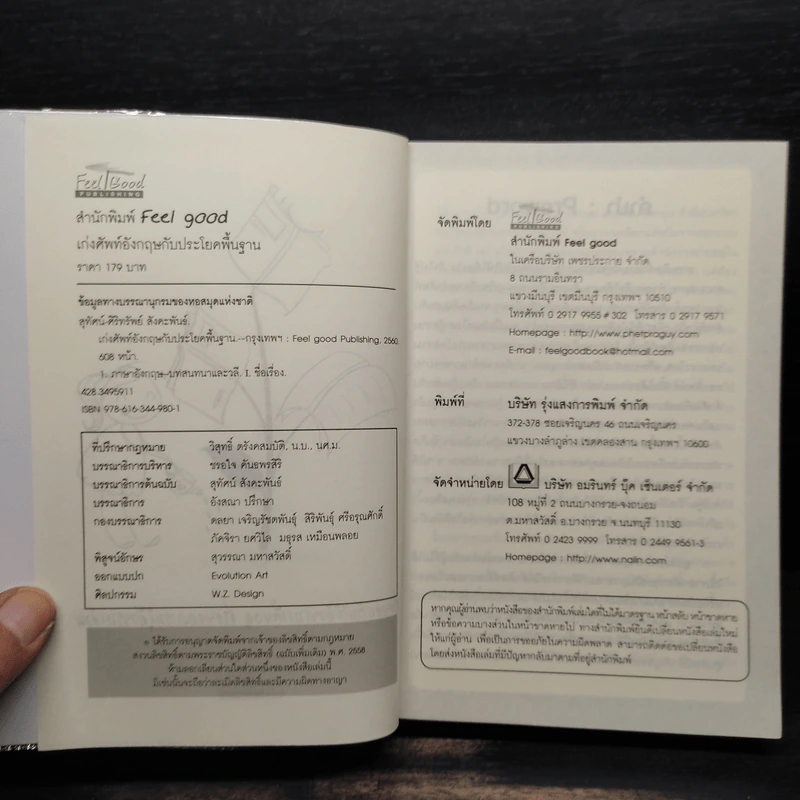 Feel Good
PUBLISHING
สำนักพิมพ์ Feel good
เก่งศัพท์อังกฤษกับประโยคพื้นฐาน
ราคา 179 บาท
ข้อมูลทางบรรณานุกรมของหอสมุดแห่งชาติ
สุทัศน์-ศิริทรัพย์ สังคะพันธ์.
เก่งศัพท์อังกฤษกับประโยคพื้นฐาน.--กรุงเทพฯ : Feel good Publishing, 2560.
608 หน้า.
1. ภาษาอังกฤษ--บทสนทนาและวลี. I. ชื่อเรื่อง.
428.3495911
ISBN 978-616-344-980-1
ที่ปรึกษากฎหมาย วิสุทธิ์ ตรังคสมบัติ, น.บ., นศ.ม.
บรรณาธิการบริหาร ชรอใจ ตันธพรสิริ
บรรณาธิการต้นฉบับ สุทัศน์ สังคะพันธ์
บรรณาธิการ อังสณา ปรึกษา
กองบรรณาธิการ ดลยา เจริญรัชตพันธุ์ สิริพันธุ์ ศรีอรุณศักดิ์
ภัคจิรา ยศวิไล มธุรส เหมือนพลอย
พิสูจน์อักษร สุวรรณา มหาสวัสดิ์
ออกแบบปก Evolution Art
ศิลปกรรม W.Z. Design
* ได้รับการอนุญาตจัดพิมพ์จากเจ้าของลิขสิทธิ์ตามกฎหมาย
สงวนลิขสิทธิ์ตามพระราชบัญญัติลิขสิทธิ์ (ฉบับเพิ่มเติม) พ.ศ. 2558
ห้ามลอกเลียนส่วนใดส่วนหนึ่งของหนังสือเล่มนี้
มิเช่นนั้นจะถือว่าละเมิดลิขสิทธิ์และมีความผิดทางอาญา
จัดพิมพ์โดย Feel Good
PUBLISHING
สำนักพิมพ์ Feel good
ในเครือบริษัท เพชรประกาย จำกัด
8 ถนนรามอินทรา
แขวงมีนบุรี เขตมีนบุรี กรุงเทพฯ 10510
โทรศัพท์ 0 2917 9955 # 302 โทรสาร 0 2917 9571
Homepage : http://www.phetpraguy.com
E-mail : feelgoodbook@hotmail.com
พิมพ์ที่ บริษัท รุ่งแสงการพิมพ์ จำกัด
372-378 ซอยเจริญนคร 46 ถนนเจริญนคร
แขวงบางลำภูล่าง เขตคลองสาน กรุงเทพฯ 10600
จัดจำหน่ายโดย บริษัท อมรินทร์ บุ๊ค เซ็นเตอร์ จำกัด
108 หมู่ที่ 2 ถนนบางกรวย-จงถนอม
ต.มหาสวัสดิ์ อ.บางกรวย จ.นนทบุรี 11130
โทรศัพท์ 0 2423 9999 โทรสาร 0 2449 9561-3
Homepage : http://www.naiin.com
หากคุณผู้อ่านพบว่าหนังสือของสำนักพิมพ์เล่มใดที่ไม่ได้มาตรฐาน หน้าสลับ หน้าขาดหาย
หรือข้อความบางส่วนในหน้าขาดหายไป ทางสำนักพิมพ์ยินดีเปลี่ยนหนังสือเล่มใหม่
ให้แก่ผู้อ่าน เพื่อเป็นการขออภัยในความผิดพลาด สามารถติดต่อขอเปลี่ยนหนังสือ
โดยส่งหนังสือเล่มที่มีปัญหากลับมาตามที่อยู่สำนักพิมพ์